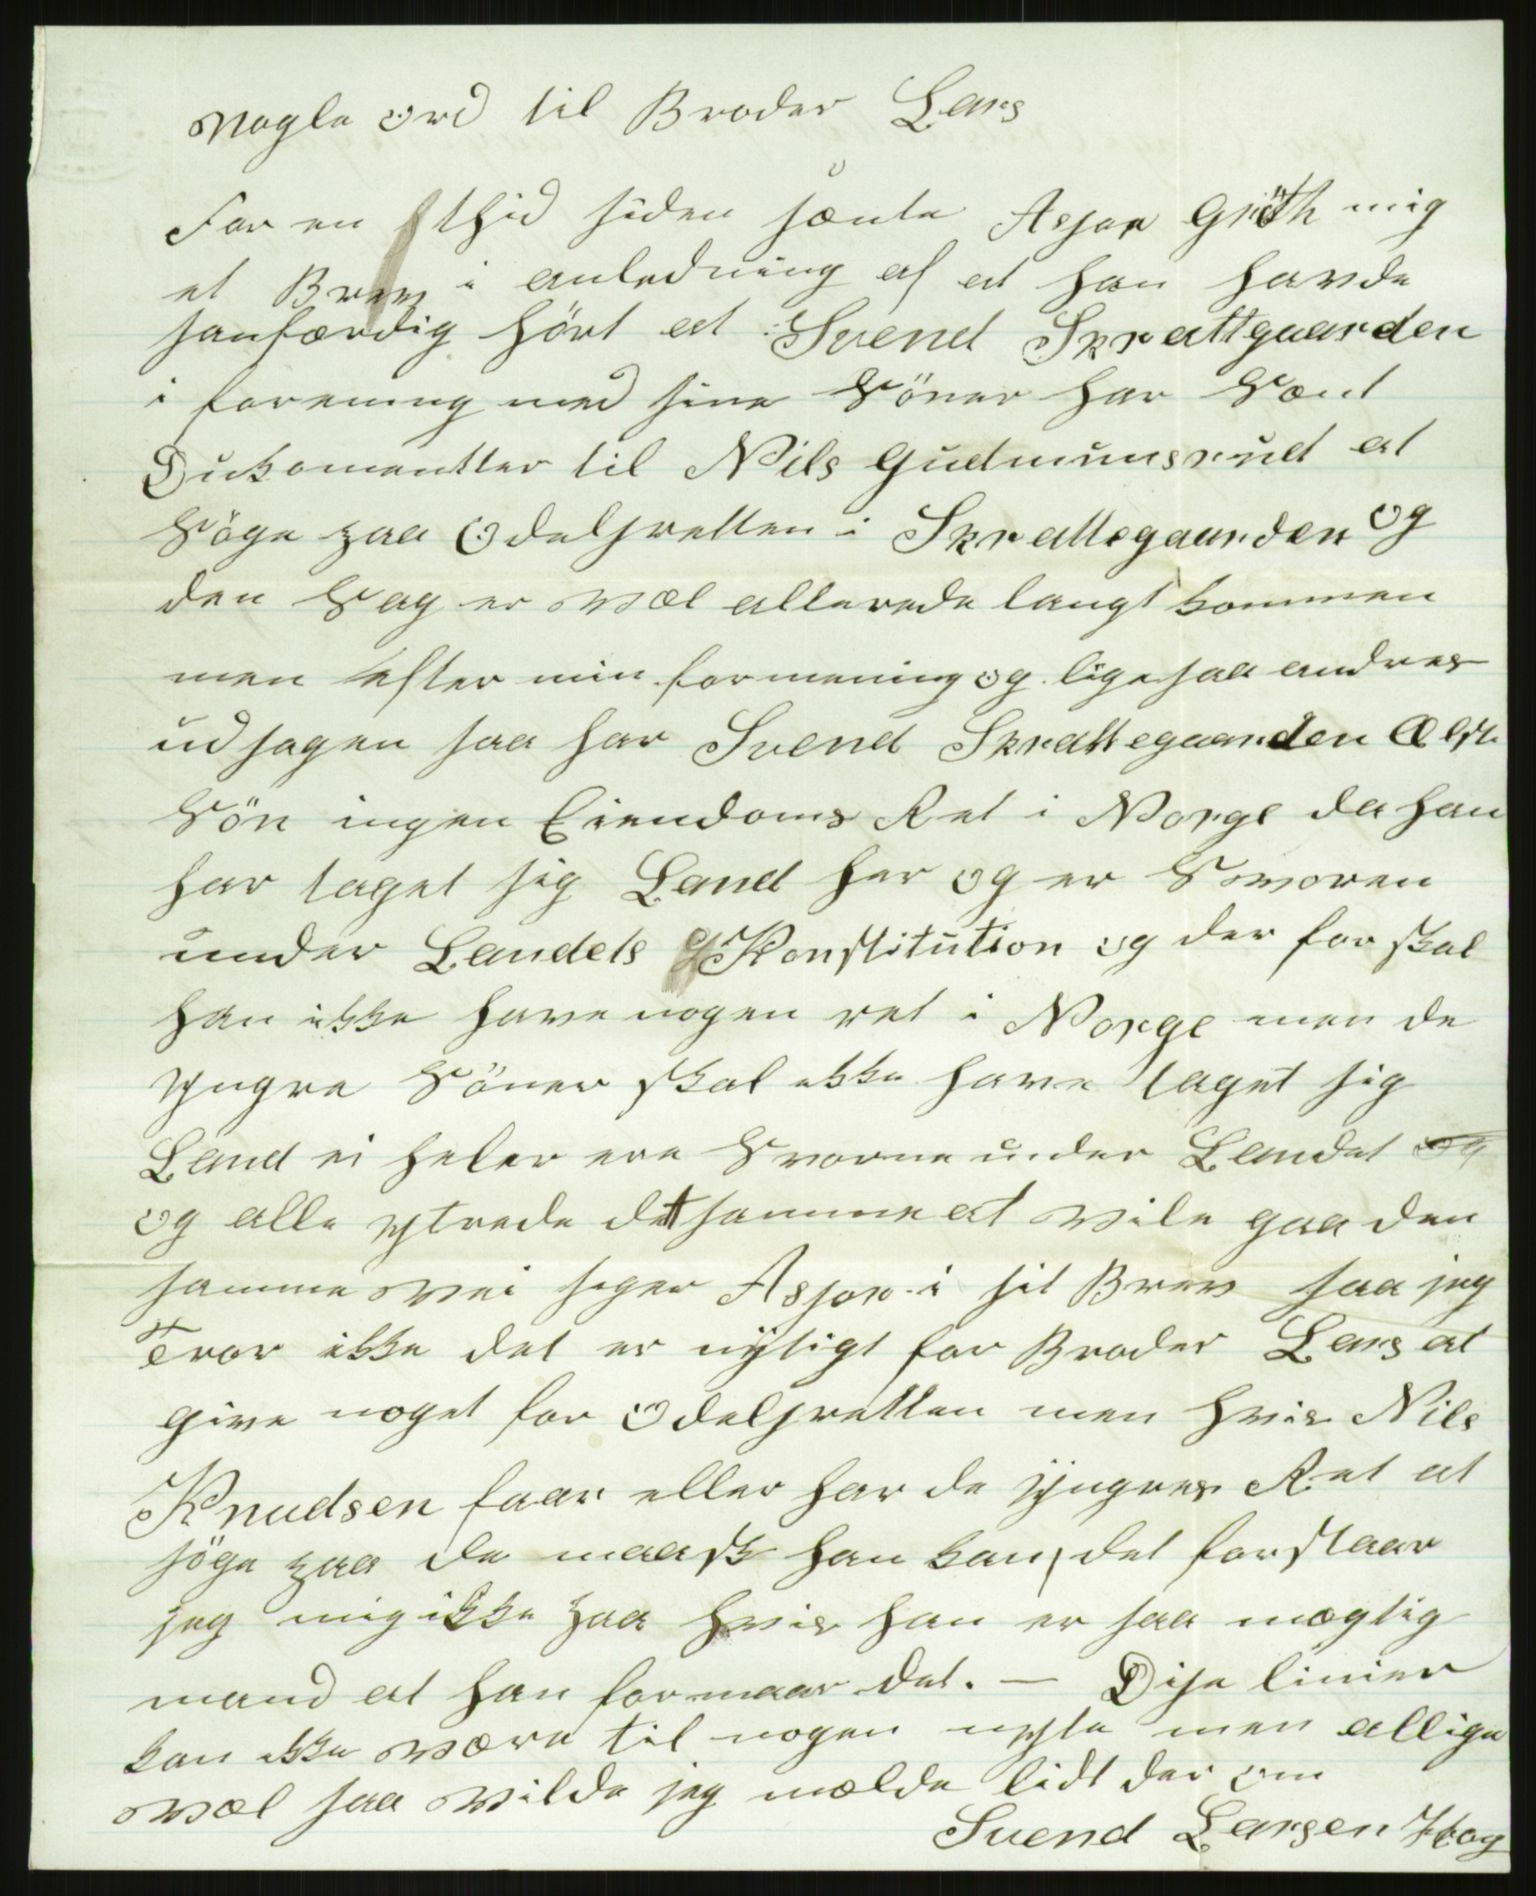 Nogle ord til Broder Lars
For en Thid siden sænte Asjør Gröth mig
et Brev i anledning af at han havde
sanfærdig hört at Svend Skrattgaarden
i forening med sine Söner har Sænt
Dukomentter til Nils Gudmunsrud at
Söge paa Odelsretten i Skrattegaarden og
den Sag er væl allerede langt kommen
men efter min formening og ligesaa andres
udsagen saa har Svend Skrattegaarden Ælste
Sön ingen Eiendoms Ret i Norge da han
har taget sig Land her og er Svoren
under Landets Konstitution og der for skal
han ikke have nogen ret i Norge men de
yngre Söner skal ikke have taget sig
Land ei heler ere Svorne under Landet og
og alle ytrede det samme at vile gaa den
samme vei siger Asjør i sit Brev saa jeg
Tror ikke det er nytigt for Broder Lars at
give noget for Odelsretten men hvis Nils
Knudsen faar eller har de yngres Ret at
söge paa da maask han kan, det forstaar
jeg mig ikke paa hvis han er saa mægtig
mand at han formaar det. — Dise linier
kan ikke være til nogen nyte men allige
væl saa vilde jeg mælde lidt der om
Svend Larsen Hog